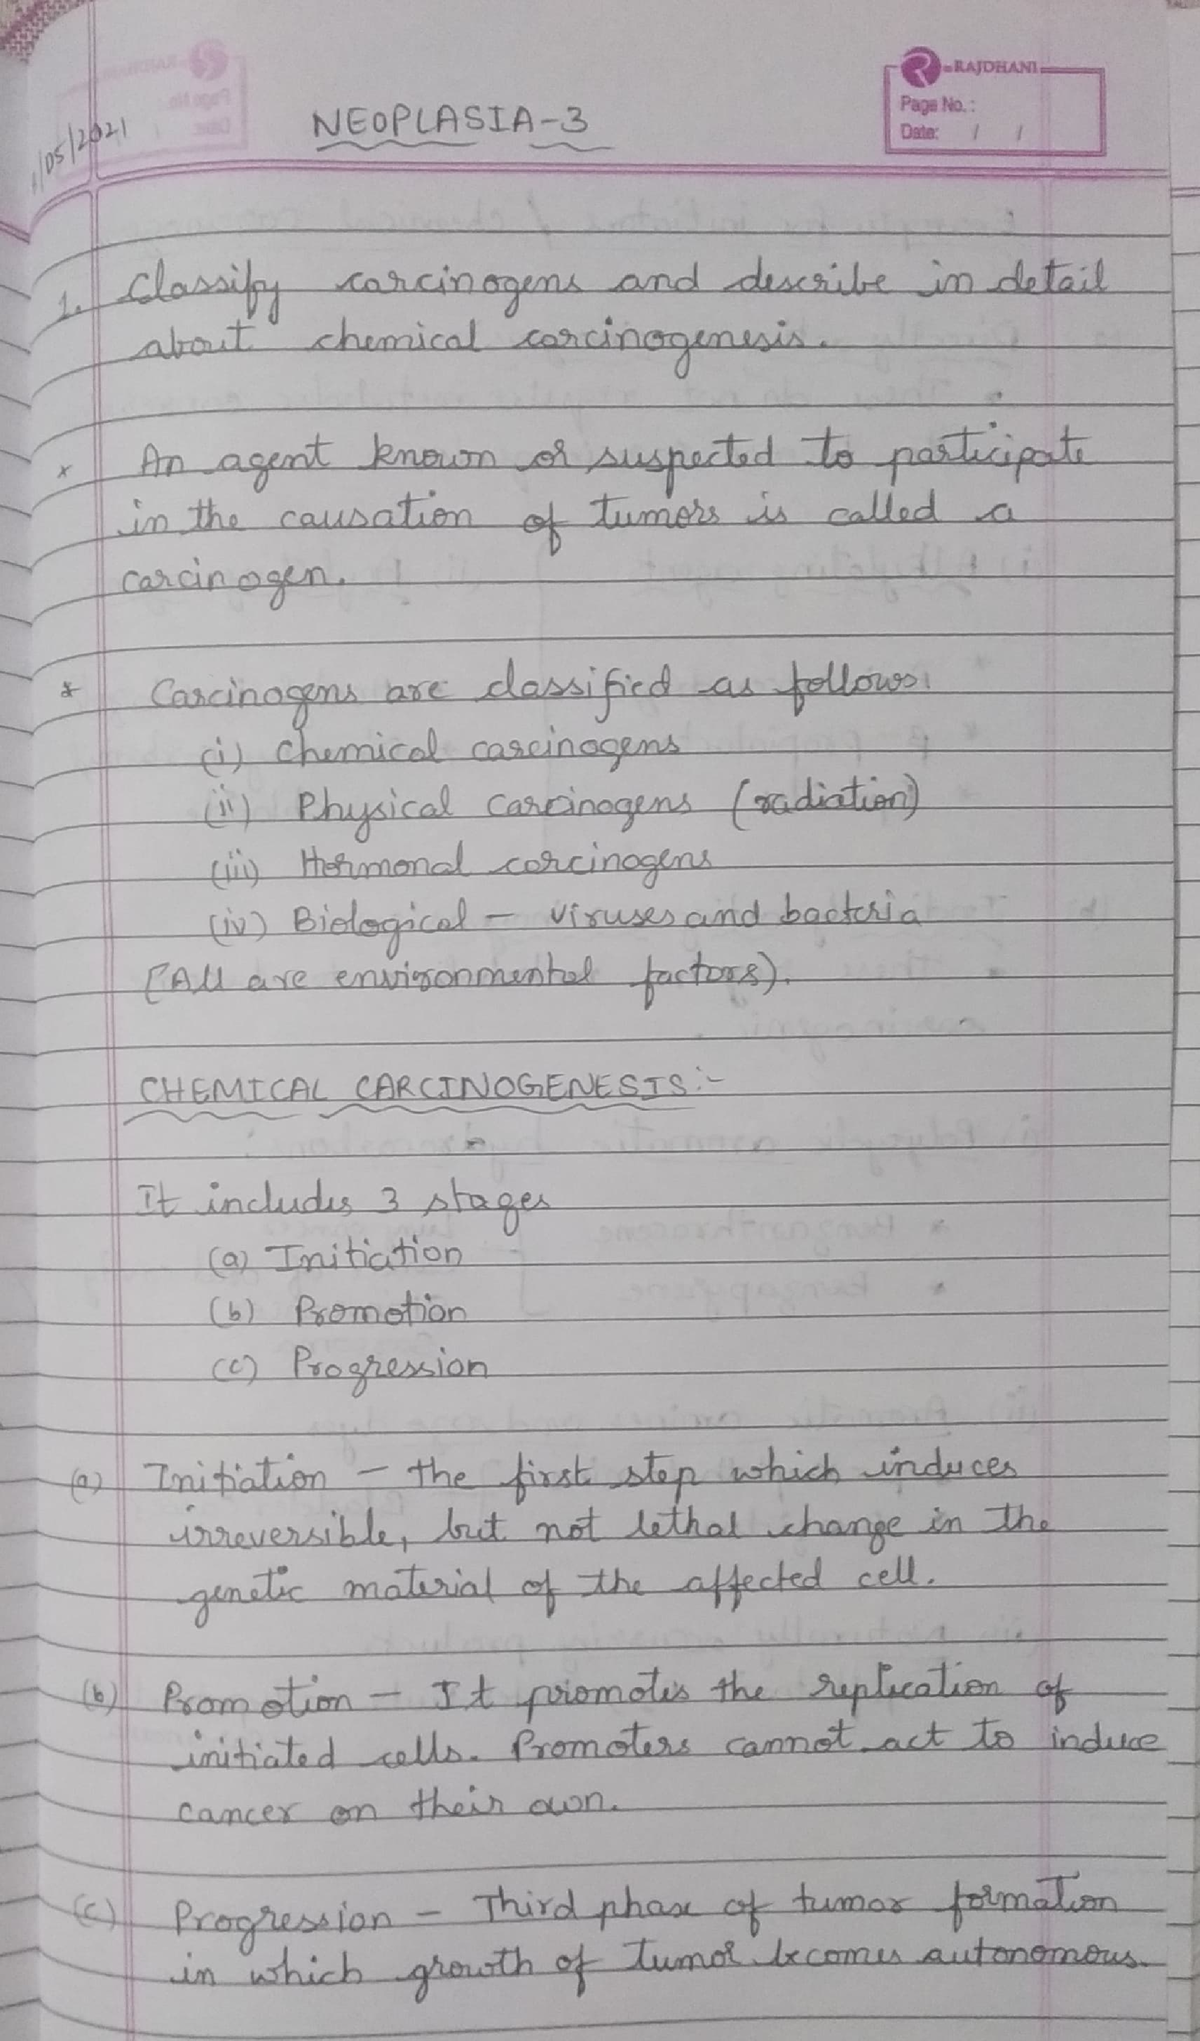 RAJDHANI
Page No.:
Date: / /
/05/2021
NEOPLASIA-3
1. Classify carcinogens and describe in detail
about chemical carcinogenesis.
* An agent known or suspected to participate
in the causation of tumors is called a
carcinogen.
* Carcinogens are classified as follows:
(i) Chemical carcinogens
(ii) Physical carcinogens (radiation)
(iii) Hormonal carcinogens
(iv) Biological - viruses and bacteria
[All are environmental factors).
CHEMICAL CARCINOGENESIS:-
It includes 3 stages
(a) Initiation
(b) Promotion
(c) Progression
(a) Initiation - the first step which induces
irreversible, but not lethal change in the
genetic material of the affected cell.
(b) Promotion - It promotes the replication of
initiated cells. Promoters cannot act to induce
cancer on their own.
(c) Progression - Third phase of tumor formation
in which growth of tumor becomes autonomous.